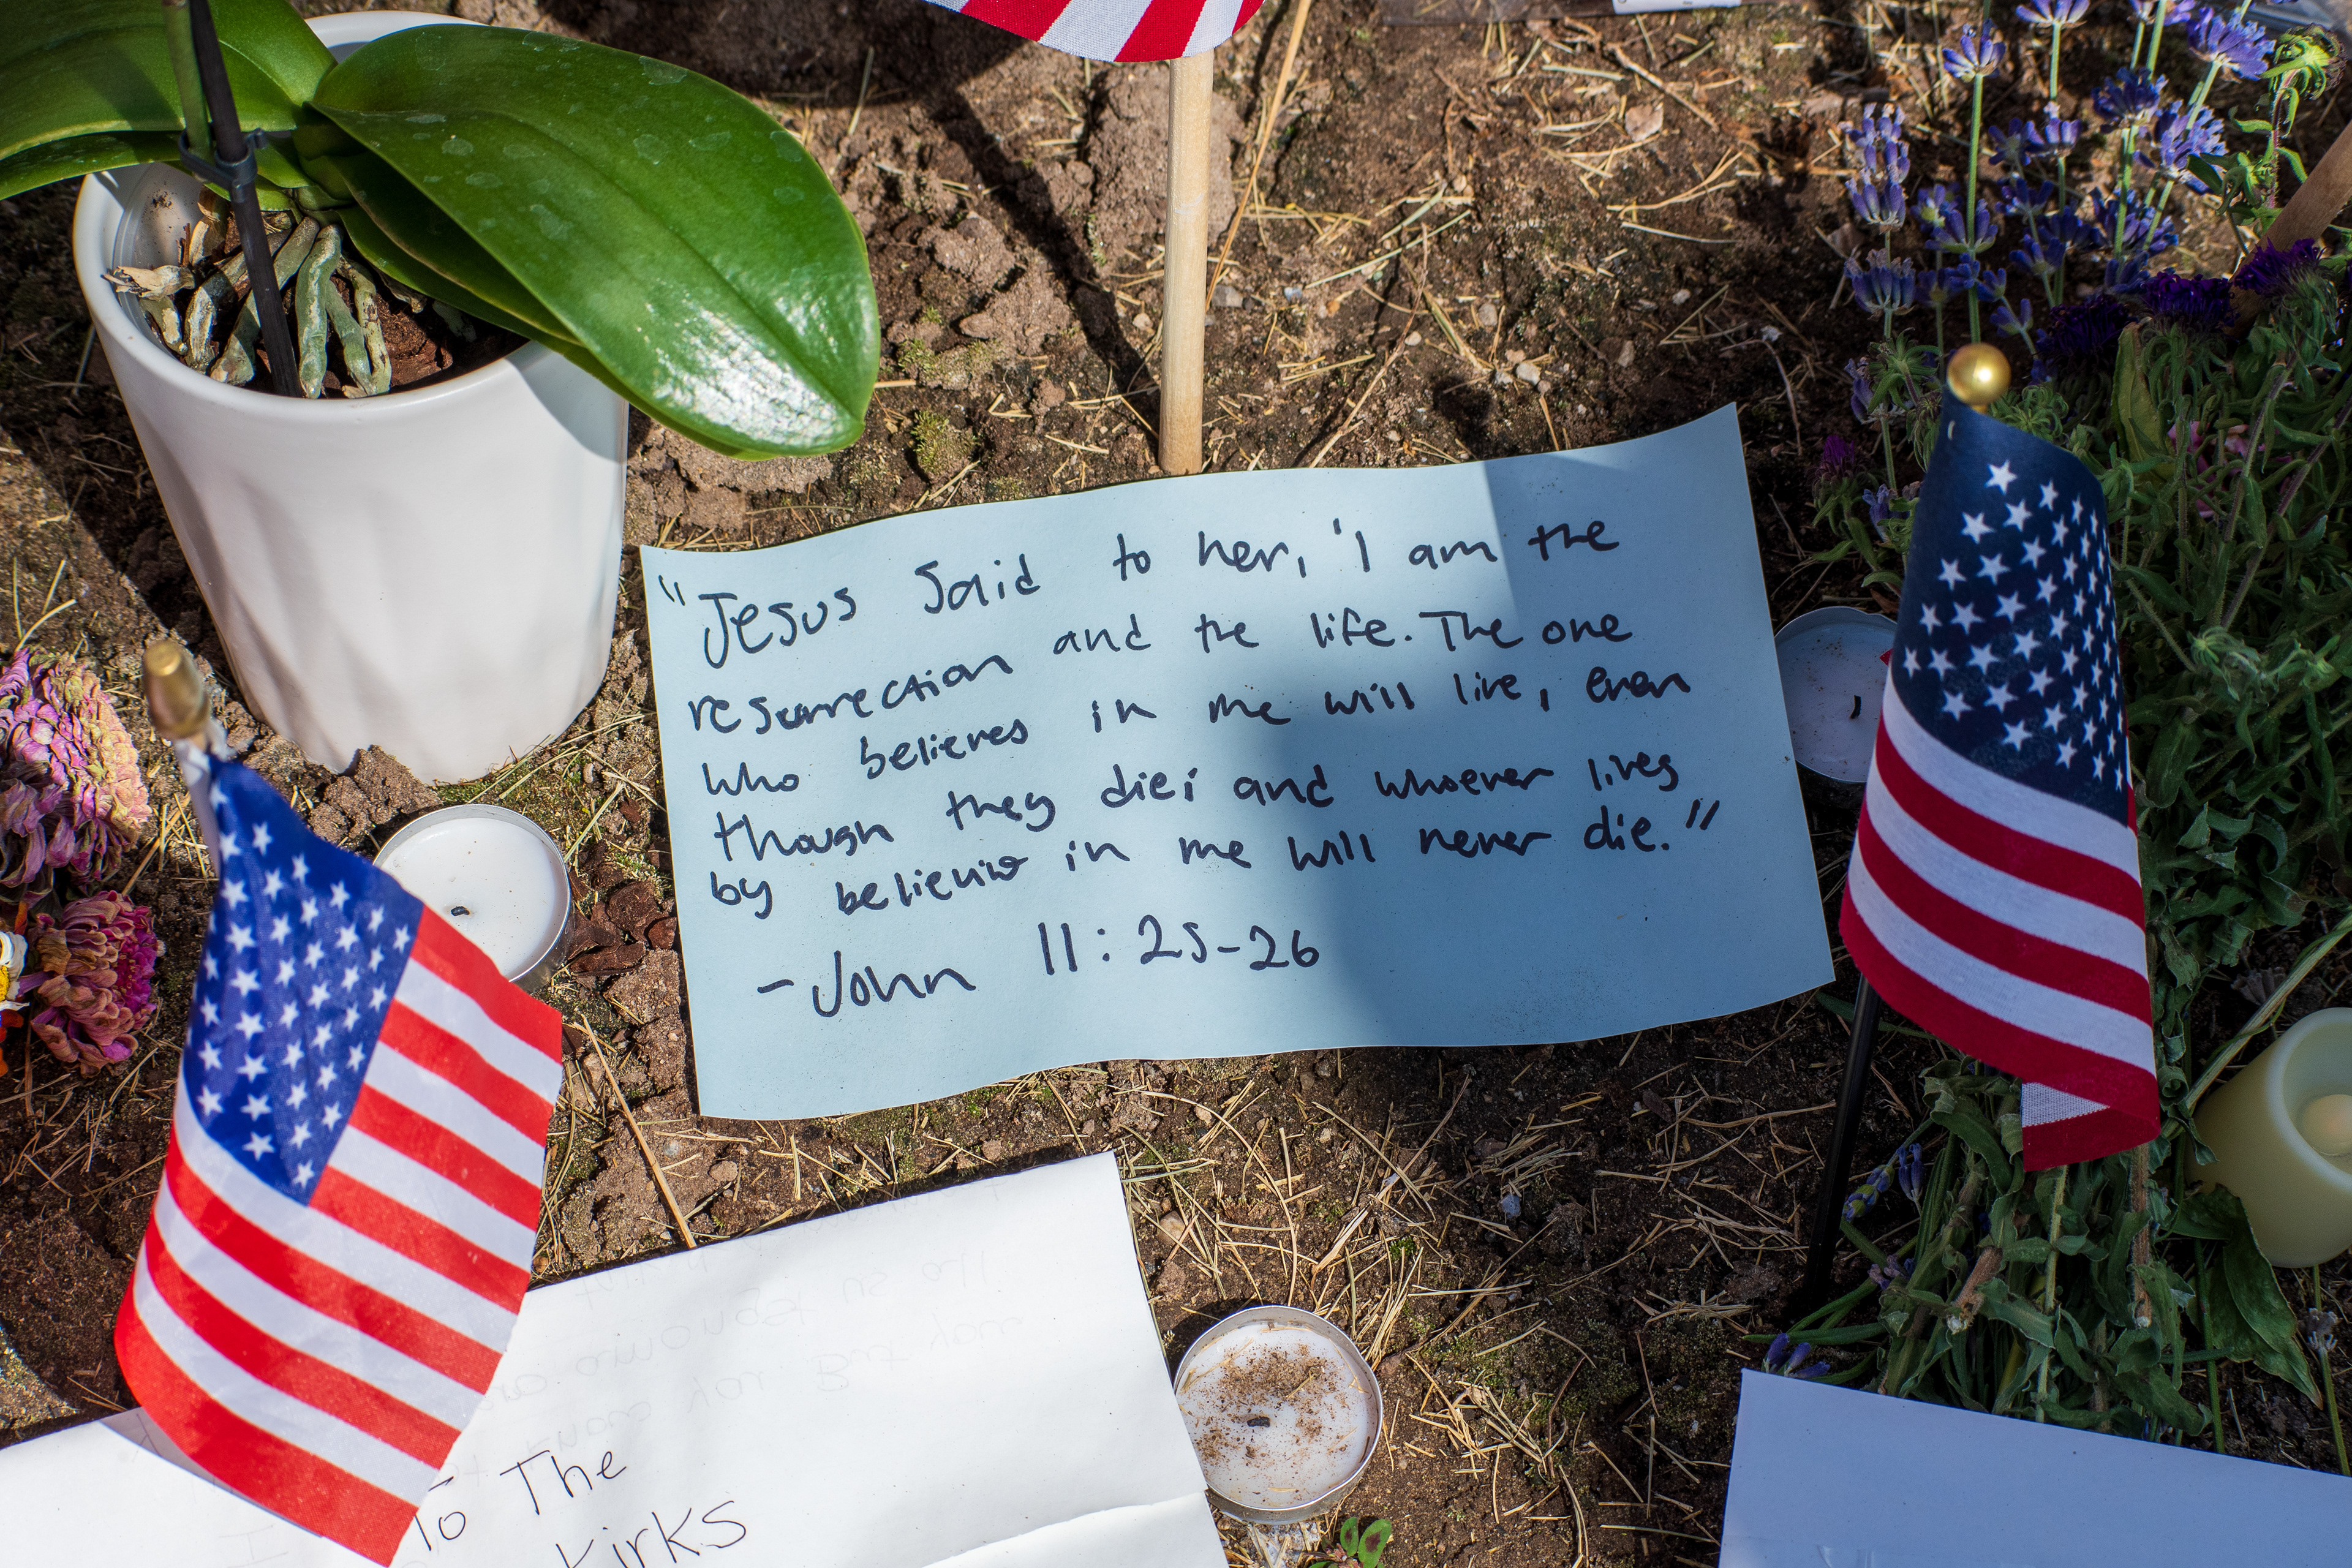 "Jesus said to her, 'I am the
resurrection and the life. The one
who believes in me will live, even
though they die; and whoever lives
by believing in me will never die."
- John 11:25-26
To The
Kirks